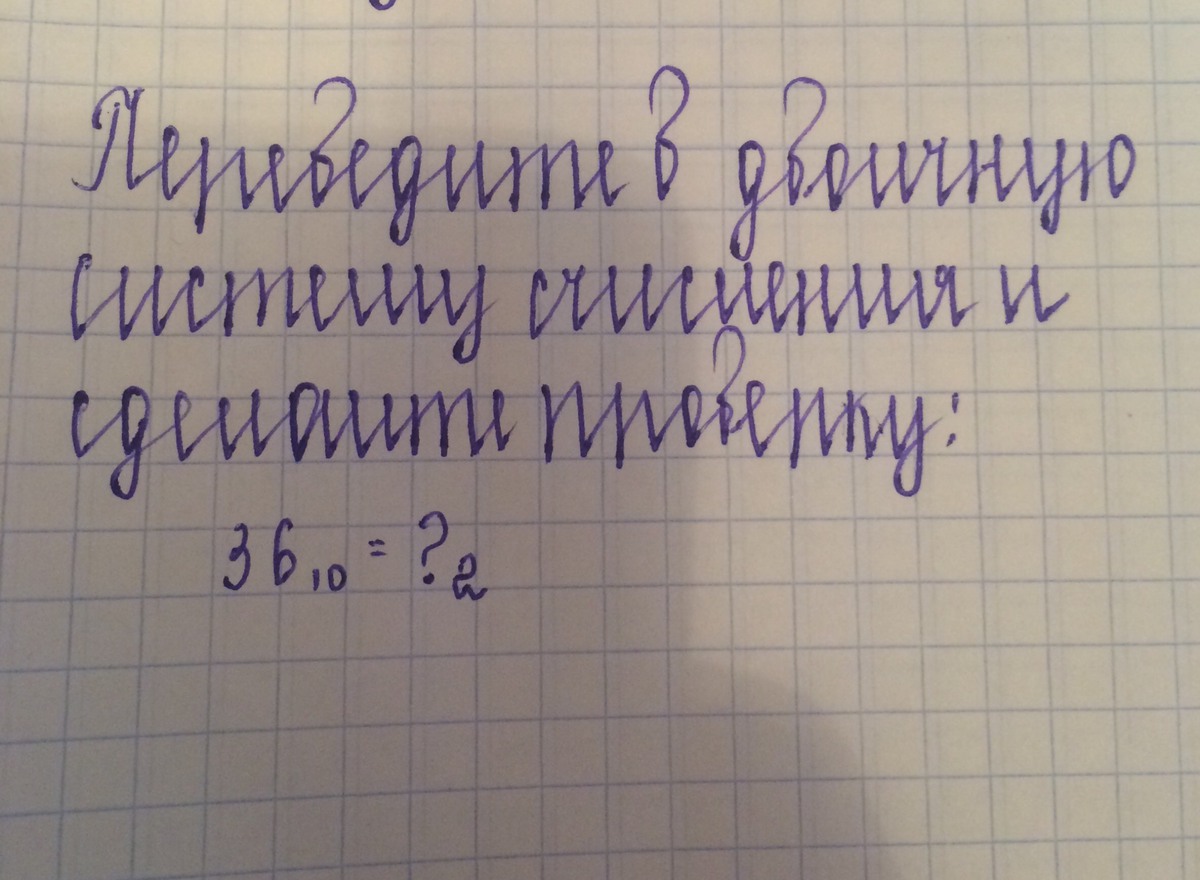 Переведите в двоичную
систему счисления и
сделайте проверку:
36₁₀ = ?₂